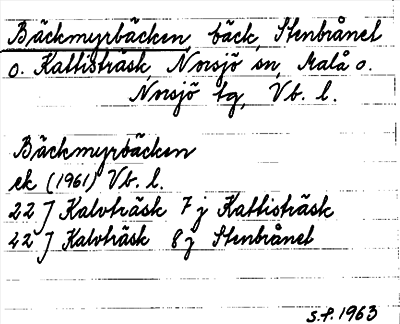 Bäckmyrbäcken, bäck, Stenbrånet
o. Kattisträsk, Norsjö sn, Malå o.
Norsjö tg, Vb. l.
Bäckmyrbäcken
ek (1961) Vb. l.
22 J Kalvträsk 7 j Kattisträsk
42 J Kalvträsk 8 j Stenbrånet
S.P. 1963